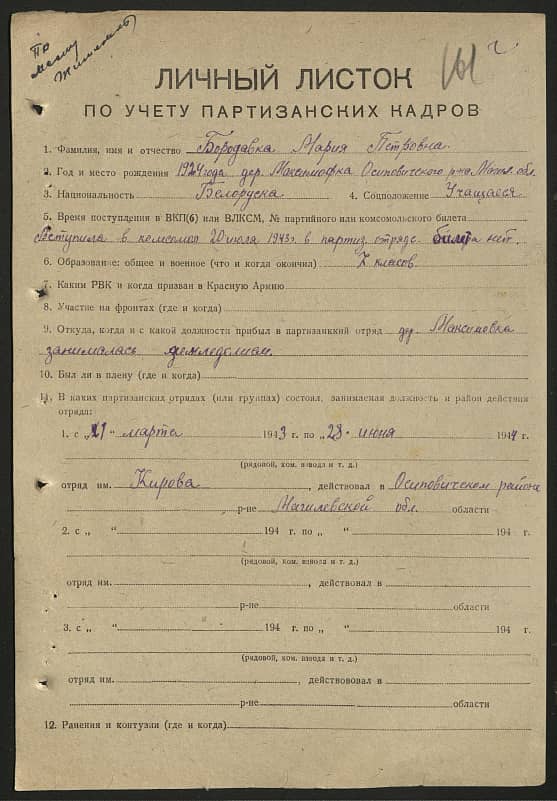 По
месту
жительства
161
ЛИЧНЫЙ ЛИСТОК
ПО УЧЕТУ ПАРТИЗАНСКИХ КАДРОВ
1. Фамилия, имя и отчество Бородавка Мария Петровна
2. Год и место рождения 1924 года дер. Максимовка Осиповичского р-на Могил. обл.
3. Национальность Белоруска 4. Соцположение Учащаяся
5. Время поступления в ВКП(б) или ВЛКСМ, № партийного или комсомольского билета
Поступила в комсомол 20 июля 1943 г. в партиз. отряде билета нет
6. Образование: общее и военное (что и когда окончил) X класов
7. Каким РВК и когда призван в Красную Армию
8. Участие на фронтах (где и когда)
9. Откуда, когда и с какой должности прибыл в партизанккий отряд дер. Максимовка
занималась земледелием
10. Был ли в плену (где и когда)
11. В каких партизанских отрядах (или группах) состоял, занимаемая должность и район действия
отряда:
1. с „21“ марта 1943 г. по „28“ июня 1944 г.
(рядовой, ком. взвода и т. д.)
отряд им. Кирова, действовал в Осиповичском районе
р-не Магилевской обл. области
2. с „ “ 194 г. по „ “ 194 г.
(рядовой, ком. взвода и т. д.)
отряд им. , действовал в
р-не области
3. с „ “ 194 г. по „ “ 194 г.
(рядовой, ком. взвода и т. д.)
отряд им. , действовал в
р-не области
12. Ранения и контузии (где и когда)